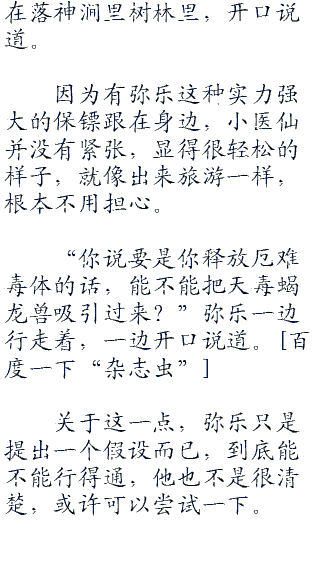 在落神涧里树林里，开口说
道。
因为有弥乐这种实力强
大的保镖跟在身边，小医仙
并没有紧张，显得很轻松的
样子，就像出来旅游一样，
根本不用担心。
“你说要是你释放厄难
毒体的话，能不能把天毒蝎
龙兽吸引过来？”弥乐一边
行走着，一边开口说道。[百
度一下“杂志虫”]
关于这一点，弥乐只是
提出一个假设而已，到底能
不能行得通，他也不是很清
楚，或许可以尝试一下。